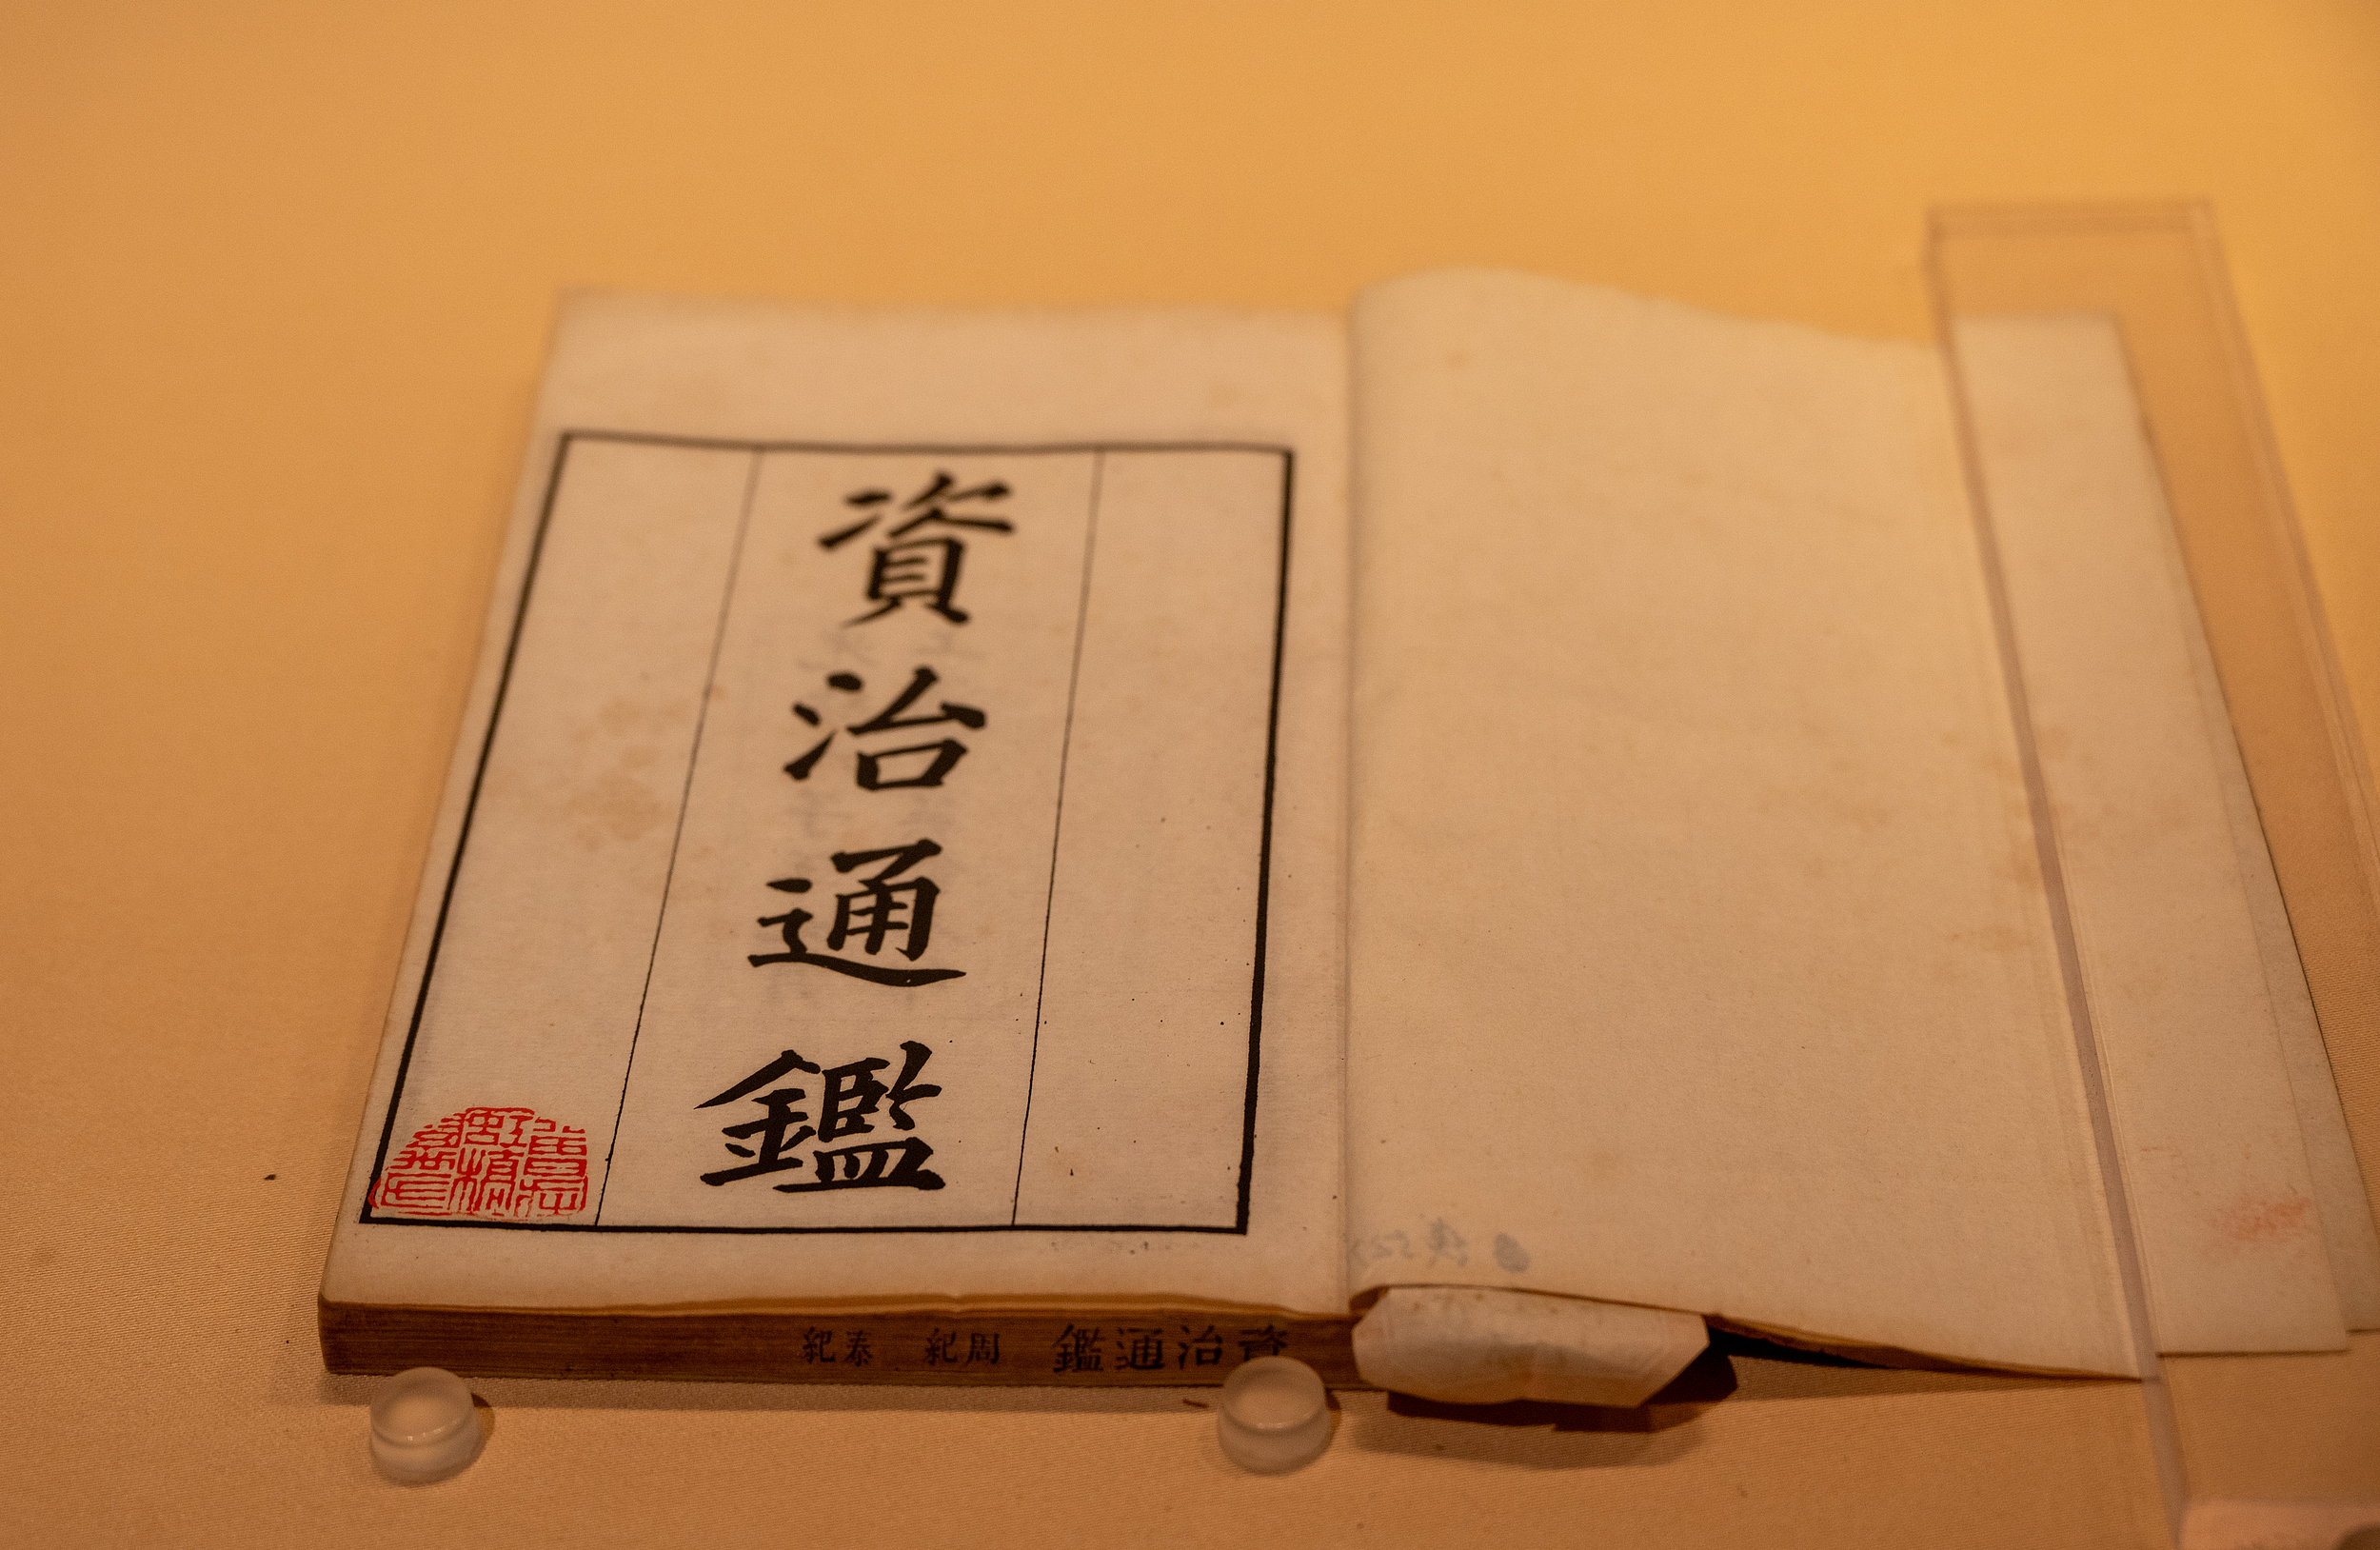 資治通鑑
資治通鑑 周紀 秦紀